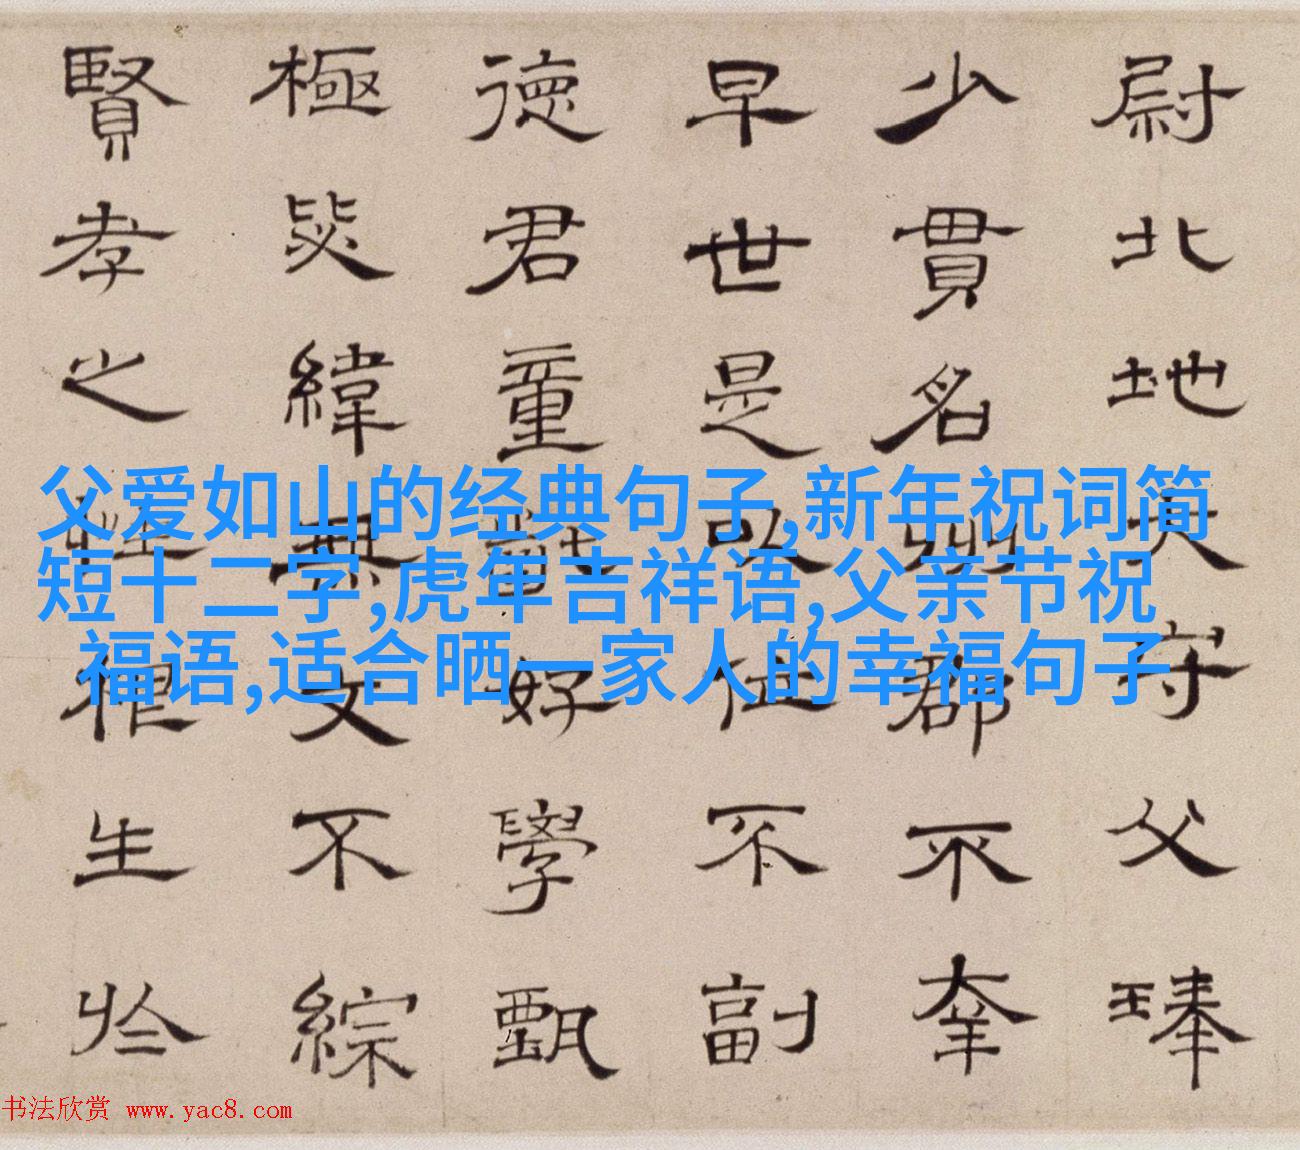 尉北地大守父琫
少貫名州郡不幸
早世是以位不副
德君童齔好學甄
極毖緯無文不綜
賢孝之性根生於
父爱如山的经典句子,新年祝词简
短十二字,虎年吉祥语,父亲节祝
福语,适合晒一家人的幸福句子
书法欣赏 www.yac8.com